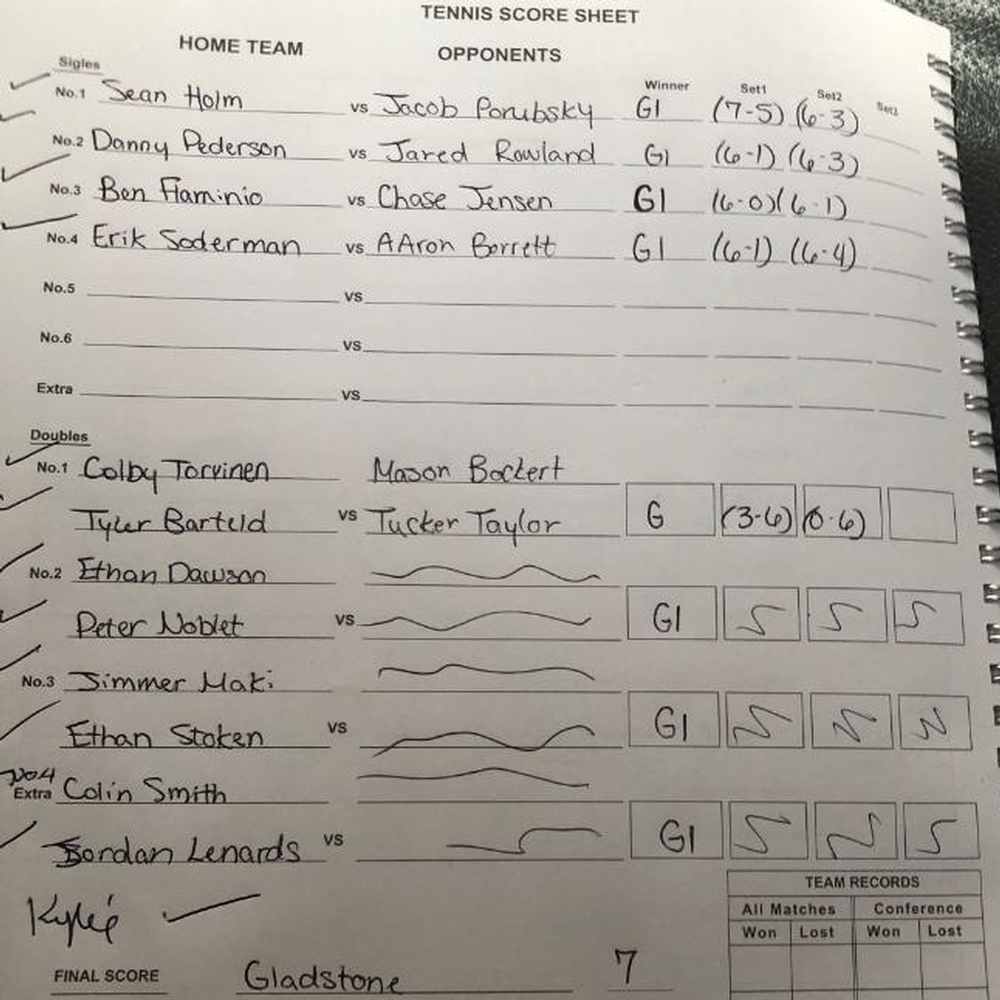 TENNIS SCORE SHEET
HOME TEAM OPPONENTS
Sigles Winner Set1 Set2 Set3
No.1 Sean Holm vs Jacob Porubsky Gl (7-5) (6-3)
No.2 Danny Pederson vs Jared Rowland Gl (6-1) (6-3)
No.3 Ben Flaminio vs Chase Jensen Gl (6-0) (6-1)
No.4 Erik Soderman vs AAron Berrett Gl (6-1) (6-4)
No.5 vs
No.6 vs
Extra vs
Doubles
No.1 Colby Torvinen Mason Bockert
Tyler Barteld vs Tucker Taylor G (3-6) (0-6)
No.2 Ethan Dawson
Peter Noblet vs Gl
No.3 Jimmer Maki
Ethan Stoken vs Gl
No4
Extra Colin Smith
Jordan Lenards vs Gl
TEAM RECORDS
Kylie All Matches Conference
Won Lost Won Lost
FINAL SCORE Gladstone 7